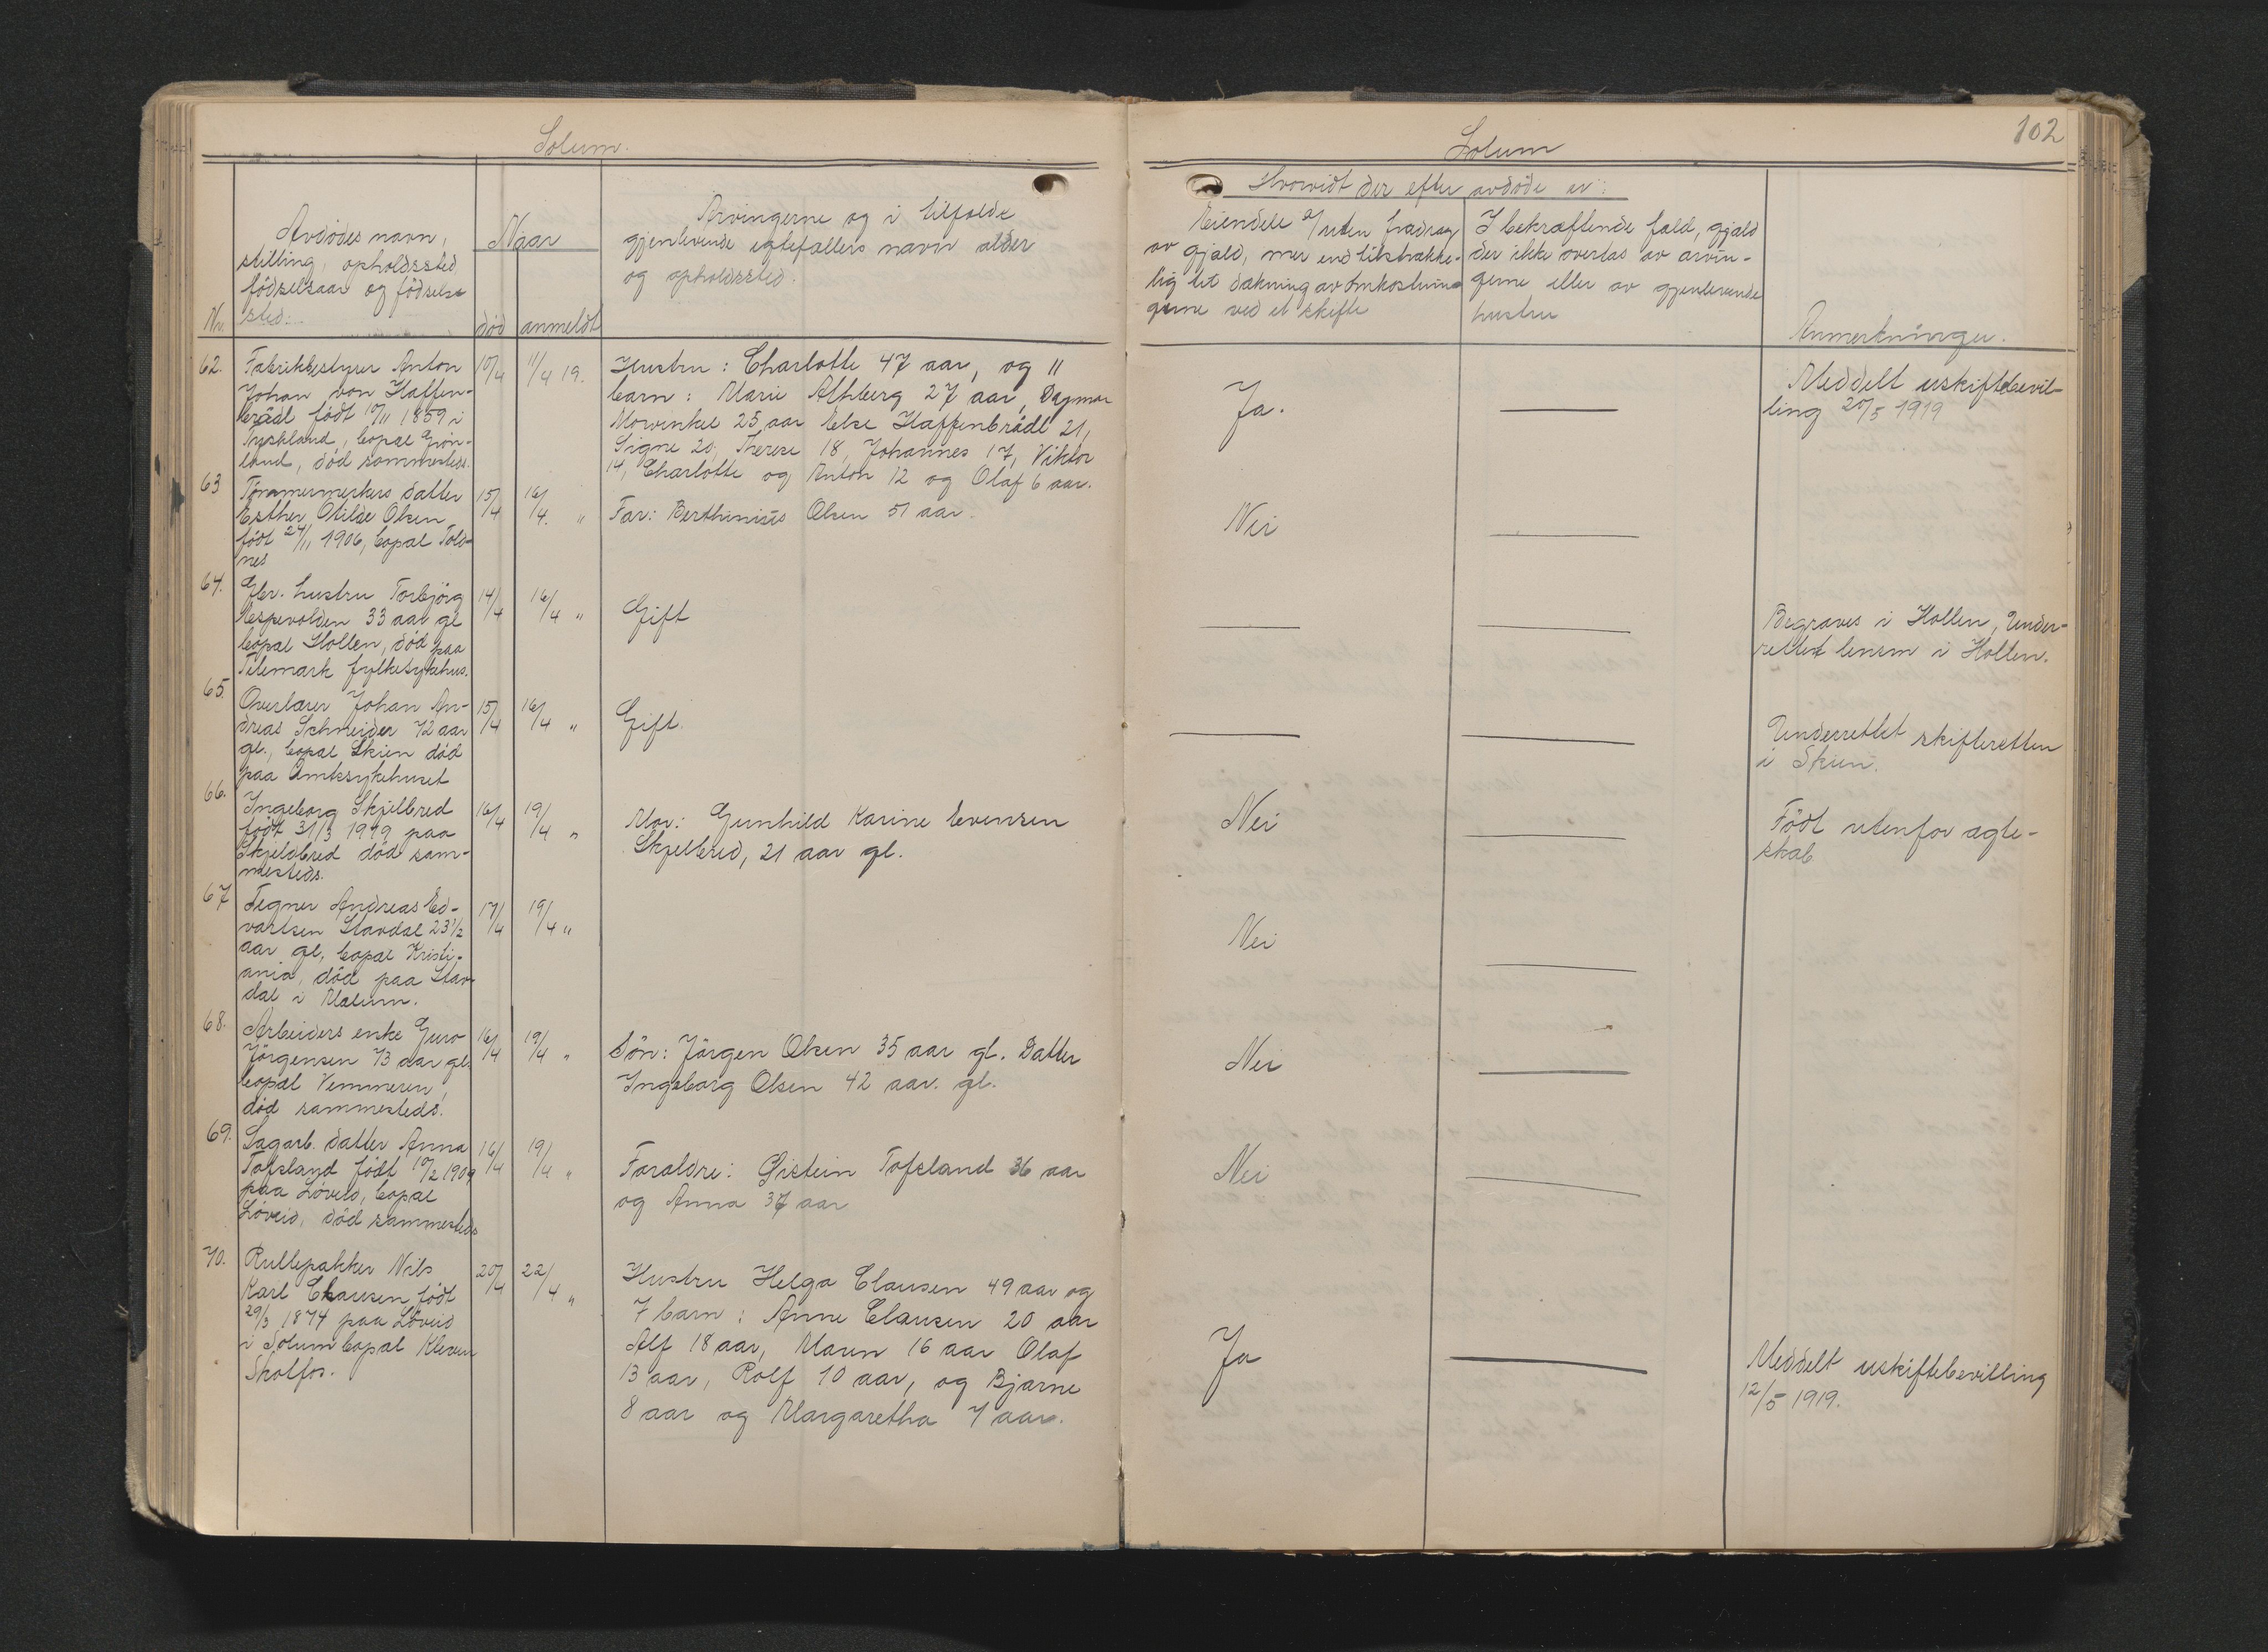 Solum.
Nr.
Avdødes navn,
stilling, opholdssted,
fødselsaar og fødsels-
sted.
Naar
død
anmeldt
Arvingerne og i tilfælde
gjenlevende egtefællers navn alder
og opholdssted.
62.
Fabrikbestyrer Anton
Johan von Haffen-
brädl født 10/11 1859 i
Tyskland, bopæl Grøn-
land, død sammesteds.
10/4
11/4 19.
Hustru: Charlotte 47 aar, og 11
barn: Marie Ahlberg 27 aar, Dagmar
Mowinkel 25 aar Else Haffenbrädl 21,
Signe 20, Therese 18, Johannes 17, Viktor
14, Charlotte og Anton 12 og Olaf 6 aar.
63
Tømmermerkers datter
Esther Otilde Olsen
født 24/11 1906, bopæl Told-
nes
15/4
16/4. "
Far: Berthinius Olsen 51 aar.
64.
Gbr. hustru Torbjørg
Næspevolden 33 aar gl
bopæl Hollen, død paa
Telemark fylkesykehus.
14/4
16/4 "
Gift
65.
Overlærer Johan An-
dreas Schneider 72 aar
gl., bopæl Skien død
paa Amtssykehuset
15/4
16/4 "
Gift.
66.
Ingeborg Skjelbred
født 31/3 1919 paa
Skjelbred død sam-
mesteds.
16/4
19/4 "
Mor: Gunhild Karine Evensen
Skjelbred, 21 aar gl.
67
Tegner Andreas Ed-
vartsen Stavdal 23 1/2
aar gl, bopæl Kristi-
ania, død paa Stav-
dal i Mælum.
17/4
19/4 "
68.
Arbeiders enke Guro
Jørgensen 73 aar gl.
bopæl Vemmeren,
død sammesteds.
16/4
19/4 "
Søn: Jørgen Olsen 35 aar gl. Datter
Ingeborg Olsen 42 aar. gl.
69.
Sagarb. datter Anna
Tofsland født 10/2 1909
paa Løveid, bopæl
Løveid, død sammesteds
16/4
19/4 "
Forældre: Øistein Tofsland 36 aar
og Anna 37 aar
70.
Rullepakker Nils
Karl Clausen født
29/3 1874 paa Løveid
i Solum bopæl Kleven
Skotfos.
20/4
22/4 "
Hustru Helga Clausen 49 aar og
7 barn: Anne Clausen 20 aar
Alf 18 aar, Maren 16 aar Olaf
13 aar, Rolf 10 aar, og Bjarne
8 aar og Margaretha 7 aar.
102
Solum
Hvorvidt der efter avdøde er:
Eiendele o/uten fradrag
av gjæld, mer end tilstrække-
lig til dækning av omkostnin-
gerne ved et skifte
I bekræftende fald, gjæld
der ikke overtas av arvin-
gerne eller av gjenlevende
hustru
Anmerkninger.
Ja.
Meddelt uskiftebevil-
ling 20/5 1919
Nei
Begraves i Hollen, Under-
rettet lensm i Hollen.
Underrettet skifteretten
i Skien.
Nei
Født utenfor ægte-
skab
Nei
Nei
Nei
Ja
Meddelt uskiftebevilling
12/5 1919.